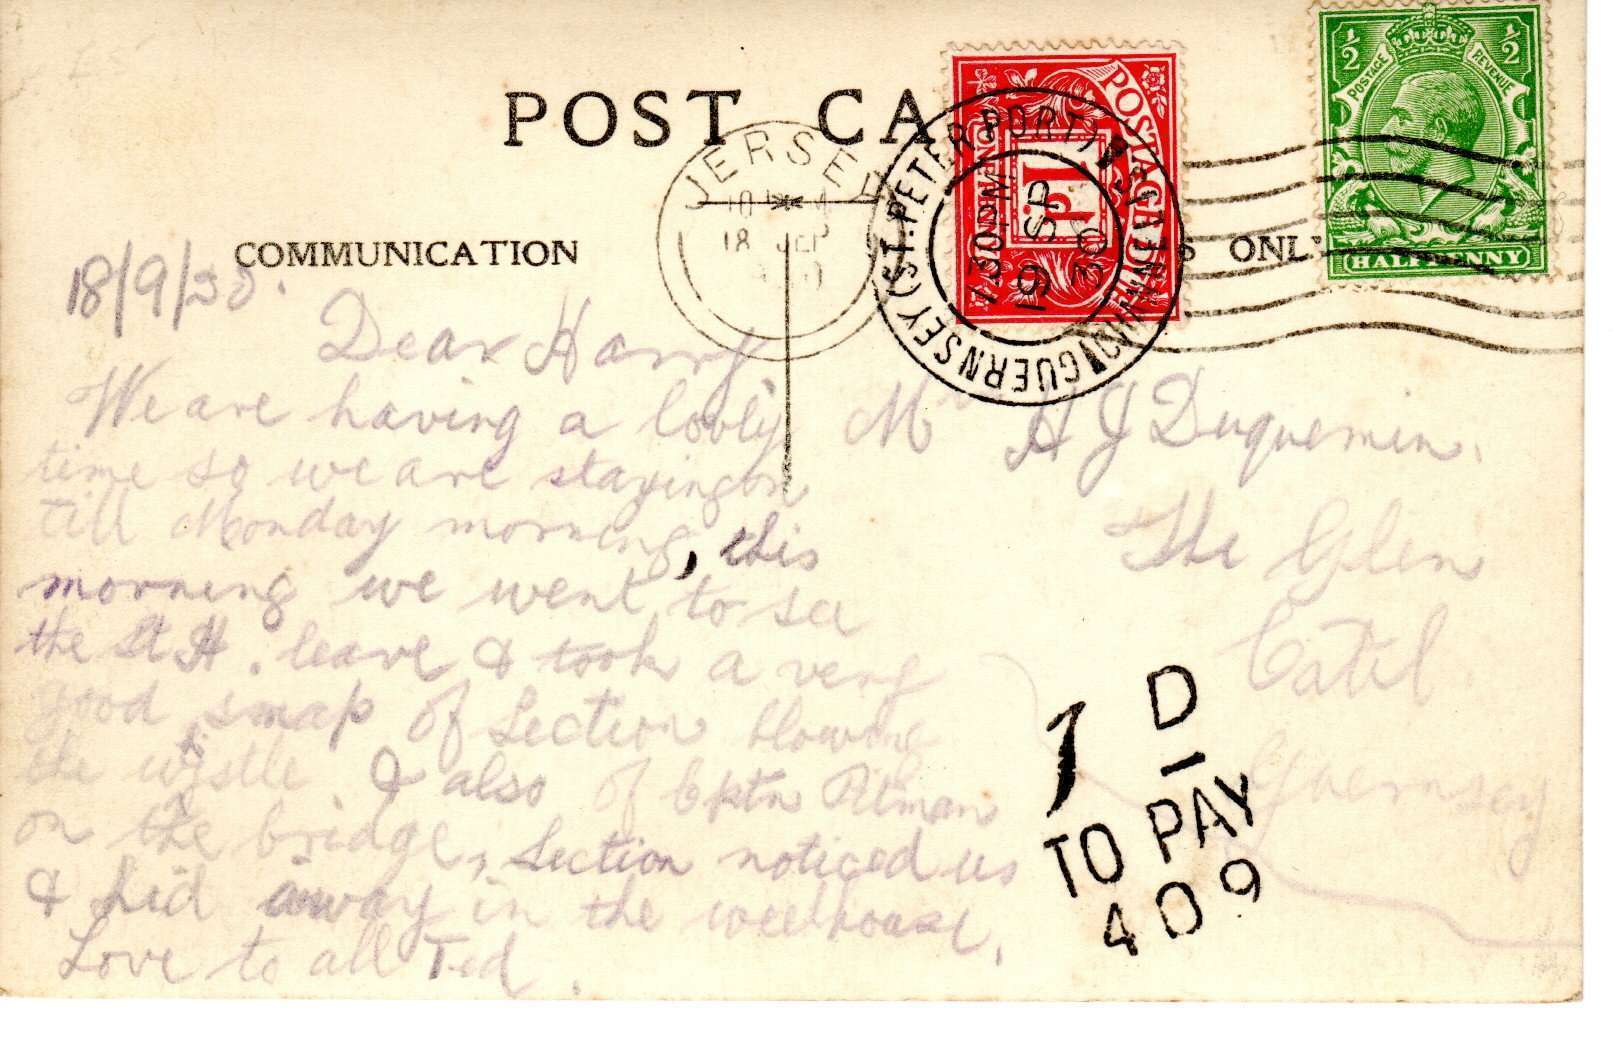 POST CA
COMMUNICATION
S ONL
JERSEY
18 SEP
GUERNSEY (ST. PETER PORT)
130 PM
19 SP
30
POSTAGE DUE
1d
POSTAGE REVENUE
½ ½
HALFPENNY
18/9/30.
Dear Harry
We are having a lovly
time so we are staying on
till Monday morning, this
morning we went to see
the St H. leave & took a very
good snap of Section blowing
the wistle & also of Cptn Pitman
on the bridge, Section noticed us
& hid away in the weelhouse.
Love to all Ted.
Mr H J Duquemin.
The Glen
Catel
Guernsey
1 D
TO PAY
409